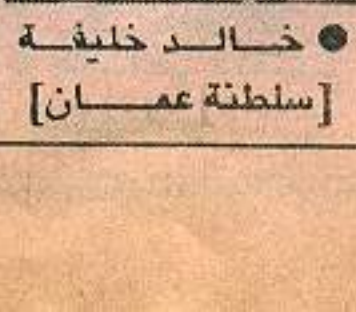 ● خالد خليفة
[سلطنة عمان]